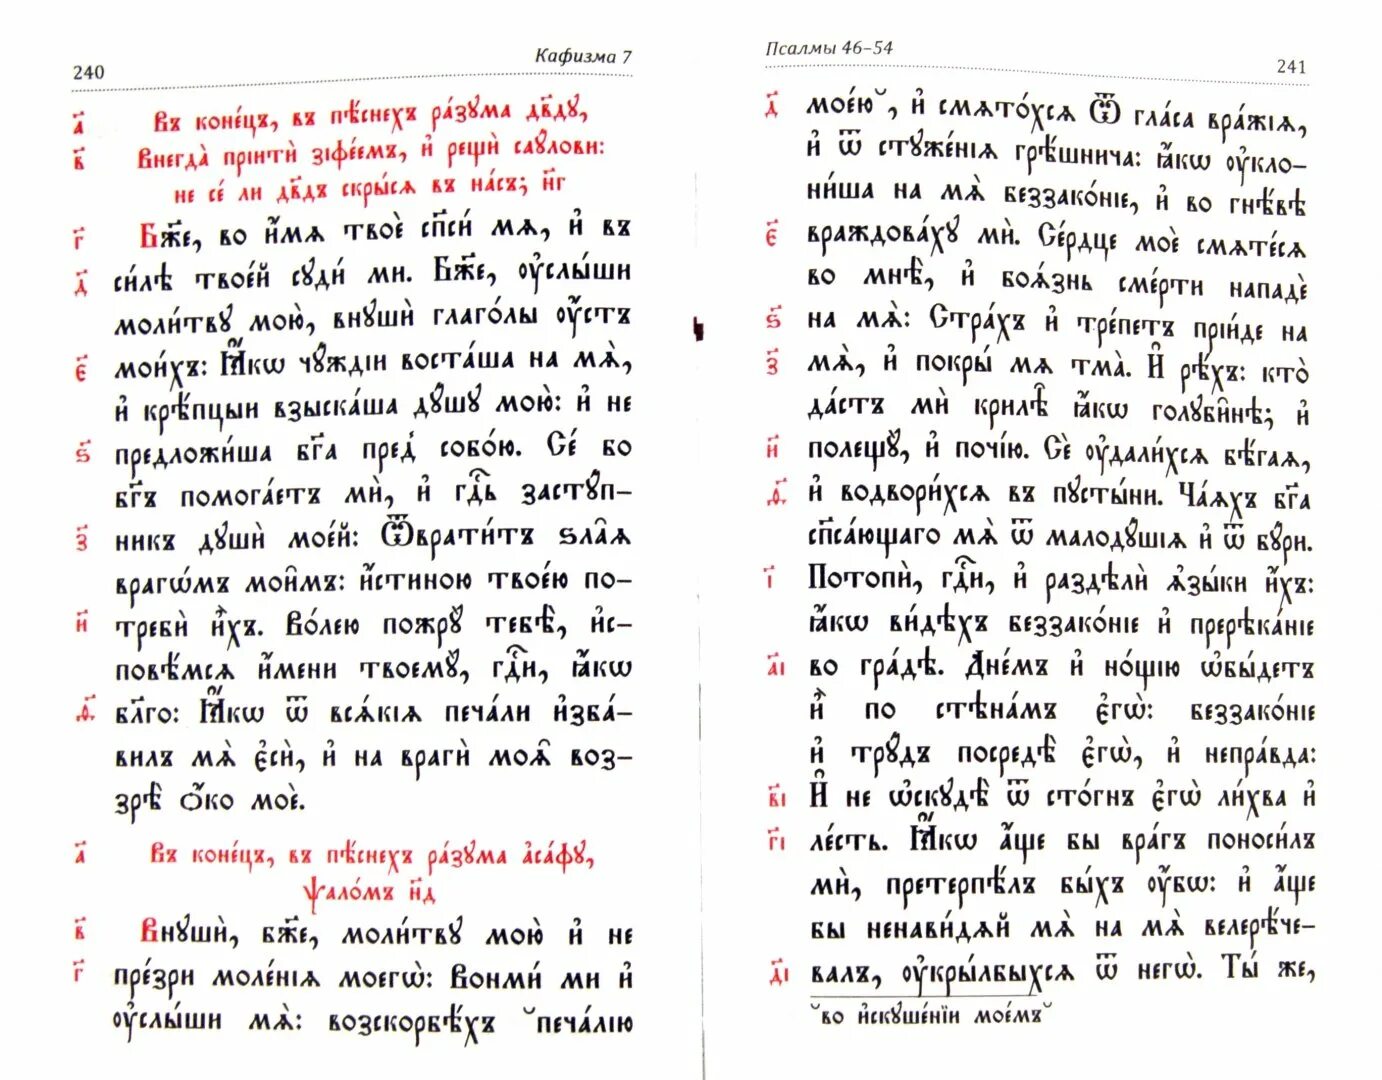 240
Кафизма 7
а҃ Въ коне́цъ, въ пѣ́снехъ ра́зꙋма дв҃дꙋ,
в҃ Внегда̀ прїитѝ зїфе́емъ, и҆ рещѝ саꙋ́лови:
не се́ ли дв҃дъ скры́сѧ въ на́съ; н҃г
г҃ Бж҃е, во и҆́мѧ твоѐ сп҃сѝ мѧ̀, и҆ въ
д҃ си́лѣ твое́й сꙋди́ ми. Бж҃е, ᲂу҆слы́ши
моли́твꙋ мою̀, внꙋшѝ глаго́лы ᲂу҆́стъ
є҃ мои́хъ: Ꙗ҆́кѡ чꙋ́ждїи воста́ша на мѧ̀,
и҆ крѣ́пцыи взыска́ша дꙋ́шꙋ мою̀: и҆ не
ѕ҃ предложи́ша бг҃а пред̾ собо́ю. Се́ бо
бг҃ъ помога́етъ мѝ, и҆ гдⷭ҇ь застꙋ́п-
з҃ никъ дꙋшѝ мое́й: Ѿврати́тъ ѕла̑ѧ
врагѡ́мъ мои̑мъ: и҆́стиною твое́ю по-
и҃ требѝ и҆̀хъ. Во́лею пожрꙋ̀ тебѣ̀, и҆с-
повѣ́мсѧ и҆́мени твоемꙋ̀, гдⷭ҇и, ꙗ҆́кѡ
ѳ҃ бл҃го: Ꙗ҆́кѡ ѿ всѧ́кїѧ печа́ли и҆зба́-
вилъ мѧ̀ є҆сѝ, и҆ на врагѝ моѧ̑ воз-
зрѣ̀ ѻ҆́ко моѐ.
а҃ Въ коне́цъ, въ пѣ́снехъ ра́зꙋма а҆са́фꙋ,
ѱало́мъ н҃д
в҃ Внꙋшѝ, бж҃е, моли́твꙋ мою̀ и҆ не
г҃ пре́зри моле́нїѧ моегѡ̀: Вонми́ ми и҆
ᲂу҆слы́ши мѧ̀: возскорбѣ́хъ ˇпеча́лїю
Псалмы 46–54
241
д҃ мое́юˇ, и҆ смѧто́хсѧ Ѿ гла́са вра́жїѧ,
и҆ ѿ стꙋже́нїѧ грѣ́шнича: ꙗ҆́кѡ ᲂу҆кло-
ни́ша на мѧ̀ беззако́нїе, и҆ во гнѣ́вѣ
є҃ враждова́хꙋ мѝ. Се́рдце моѐ смѧте́сѧ
во мнѣ̀, и҆ боѧ́знь сме́рти нападѐ
ѕ҃ на мѧ̀: Стра́хъ и҆ тре́петъ прїи́де на
з҃ мѧ̀, и҆ покры́ мѧ тма̀. И҆ рѣ́хъ: кто̀
да́стъ мѝ крилѣ̑ ꙗ҆́кѡ голꙋби̑нѣ; и҆
и҃ полещꙋ̀, и҆ почі́ю. Сѐ ᲂу҆дали́хсѧ бѣ́гаѧ,
ѳ҃ и҆ водвори́хсѧ въ пꙋсты́ни. Ча́ѧхъ бг҃а
сп҃са́ющаго мѧ̀ ѿ малодꙋ́шїѧ и҆ ѿ бꙋ́ри.
і҃ Потопѝ, гдⷭ҇и, и҆ раздѣлѝ ѧ҆зы́ки и҆́хъ:
ꙗ҆́кѡ ви́дѣхъ беззако́нїе и҆ прерѣка́нїе
а҃і во гра́дѣ. Дне́мъ и҆ но́щїю ѡ҆бы́детъ
и҆̀ по стѣна́мъ є҆гѡ̀: беззако́нїе
и҆ трꙋ́дъ посредѣ̀ є҆гѡ̀, и҆ непра́вда:
в҃і И҆ не ѡ҆скꙋдѣ̀ ѿ сто́гнъ є҆гѡ̀ ли́хва и҆
г҃і ле́сть. Ꙗ҆́кѡ а҆́ще бы вра́гъ поноси́лъ
мѝ, претерпѣ́лъ бы́хъ ᲂу҆́бѡ: и҆ а҆́ще
бы ненави́дѧй мѧ̀ на мѧ̀ велерѣ́че-
д҃і валъ, ᲂу҆кры́лбыхсѧ ѿ негѡ̀. Ты́ же,
ˇво и҆скꙋше́нїи мое́мъˇ